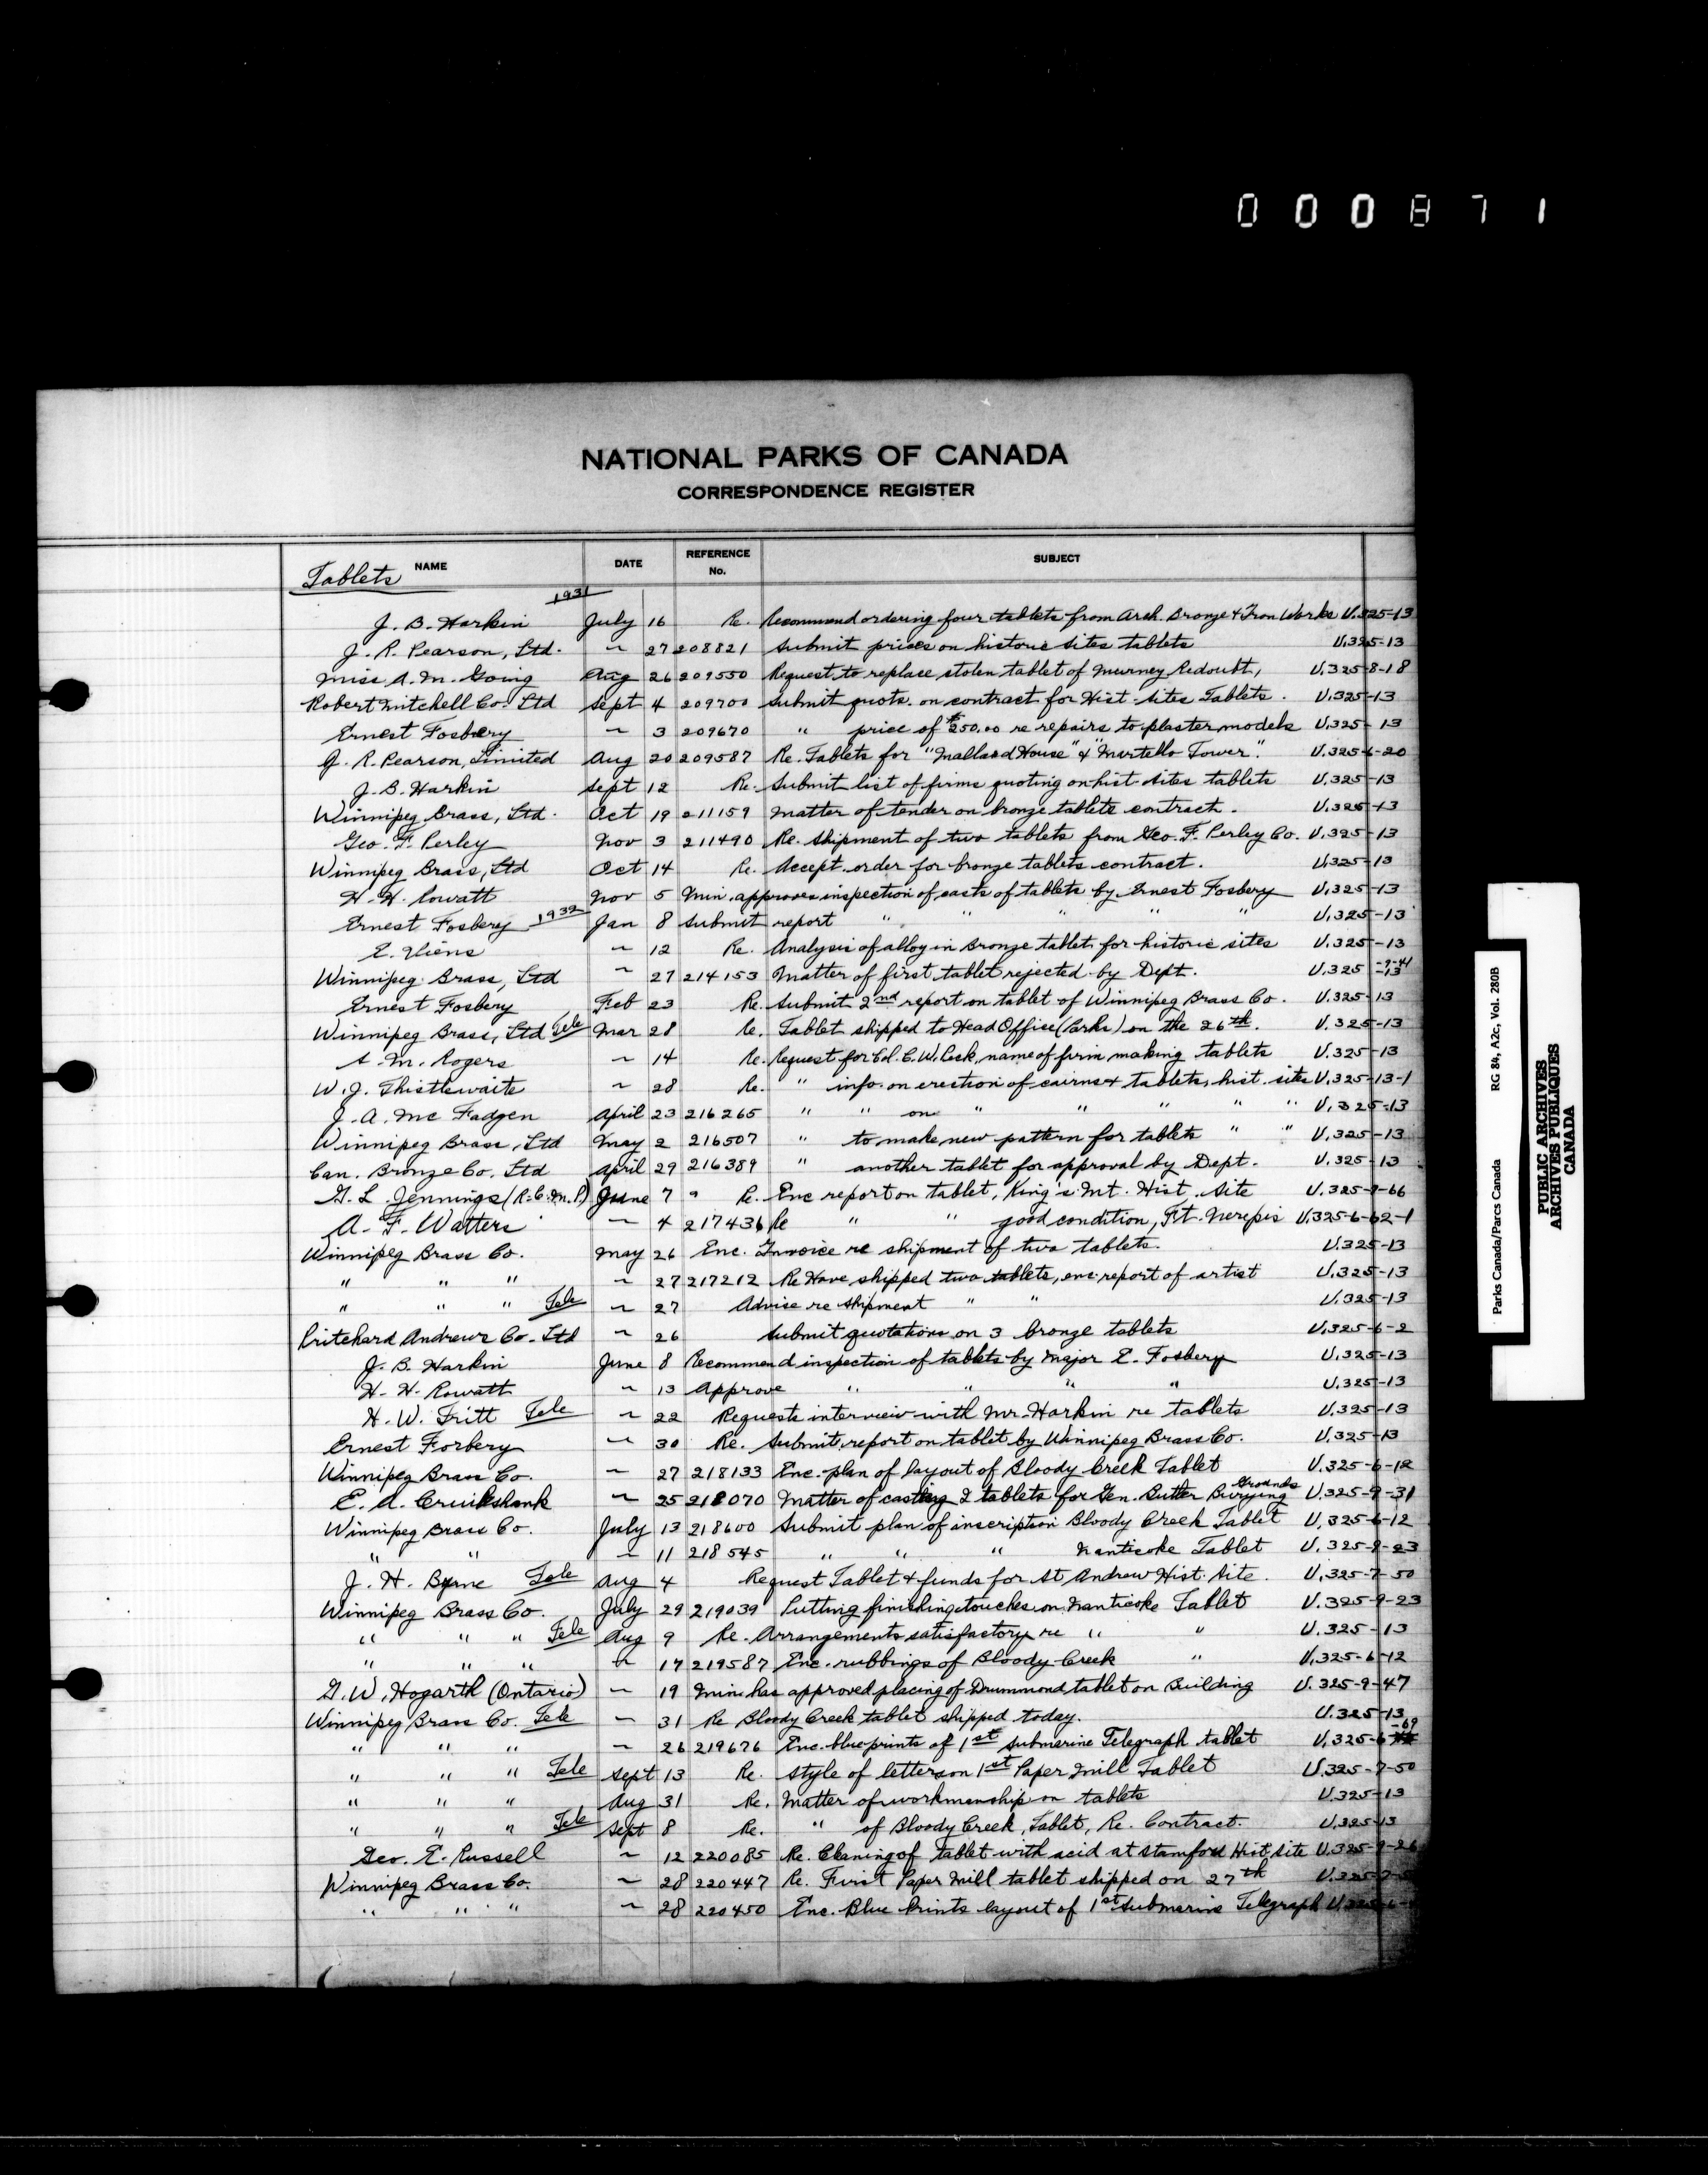 000871
NATIONAL PARKS OF CANADA
CORRESPONDENCE REGISTER
NAME DATE REFERENCE No. SUBJECT
Tablets
1931
J. B. Harkin July 16 Re. Recommend ordering four tablets from Arch. Bronze & Iron Works U.325-13
J. R. Pearson, Ltd. ~ 27 208821 Submit prices on historic sites tablets U.325-13
Miss A. M. Going Aug 26 209550 Request to replace stolen tablet of Murney Redoubt, U.325-8-18
Robert Mitchell Co. Ltd Sept 4 209700 Submit quots. on contract for Hist. Sites Tablets. U.325-13
Ernest Fosbery ~ 3 209670 " price of $250.00 re repairs to plaster models U.325-13
J. R. Pearson, Limited Aug 20 209587 Re. Tablets for "Mallard House" & "Martello Tower". U.325-6-20
J. B. Harkin Sept 12 Re. Submit list of firms quoting on hist. sites tablets U.325-13
Winnipeg Brass, Ltd. Oct 19 211159 Matter of tender on bronze tablets contract. U.325-13
Geo. F. Perley Nov 3 211490 Re. Shipment of two tablets from Geo. F. Perley Co. U.325-13
Winnipeg Brass, Ltd Oct 14 Re. Accept order for bronze tablets contract. U.325-13
H. H. Rowatt Nov 5 Min. approves inspection of casts of tablets by Ernest Fosbery U.325-13
Ernest Fosbery 1932 Jan 8 Submit report " " " " " U.325-13
E. Viens ~ 12 Re. Analysis of alloy in Bronze tablet for historic sites U.325-13
Winnipeg Brass, Ltd ~ 27 214153 Matter of first tablet rejected by Dept. U.325-13 -9-41
Ernest Fosbery Feb 23 Re. Submit 2nd report on tablet of Winnipeg Brass Co. U.325-13
Winnipeg Brass, Ltd Tele Mar 28 Re. Tablet shipped to Head Office (Parks) on the 26th. U.325-13
A. M. Rogers ~ 14 Re. Request for Col. C. W. Peck, name of firm making tablets U.325-13
W. J. Thistlewaite ~ 28 Re. " info. on erection of cairns & tablets, hist. sites U.325-13-1
J. A. Mc Fadgen April 23 216265 " " on " " " " U.325-13
Winnipeg Brass, Ltd May 2 216507 " to make new pattern for tablets " " U.325-13
Can. Bronze Co. Ltd April 29 216389 " another tablet for approval by Dept. U.325-13
G. L. Jennings (R.C.M.P) June 7 " Re. Enc report on tablet, King's Mt. Hist. Site U.325-9-66
A. F. Watters ~ 4 217436 Re " " good condition, Ft. Nerepis U.325-6-62-1
Winnipeg Brass Co. May 26 Enc. Invoice re shipment of two tablets. U.325-13
" " " ~ 27 217212 Re Have shipped two tablets, enc report of artist U.325-13
" " " Tele ~ 27 Advise re shipment " " U.325-13
Pritchard Andrews Co. Ltd ~ 26 Submit quotations on 3 bronze tablets U.325-6-2
J. B. Harkin June 8 Recommend inspection of tablets by Major E. Fosbery U.325-13
H. H. Rowatt ~ 13 Approve " " " " U.325-13
H. W. Fritt Tele ~ 22 Requests interview with Mr. Harkin re tablets U.325-13
Ernest Forbery ~ 30 Re. Submits report on tablet by Winnipeg Brass Co. U.325-13
Winnipeg Brass Co. ~ 27 218133 Enc. plan of layout of Bloody Creek Tablet U.325-6-12
E. A. Cruikshank ~ 25 218070 Matter of casting 2 tablets for Gen. Butler Burying Grounds U.325-9-31
Winnipeg Brass Co. July 13 218600 Submit plan of inscription Bloody Creek Tablet U.325-6-12
" " ~ 11 218545 " " " Nanticoke Tablet U.325-9-23
J. H. Byrne Tele Aug 4 Request Tablet & funds for St Andrew Hist. Site. U.325-7-50
Winnipeg Brass Co. July 29 219039 Putting finishing touches on Nanticoke Tablet U.325-9-23
" " " Tele Aug 9 Re. Arrangements satisfactory re " " U.325-13
" " " ~ 17 219587 Enc. rubbings of Bloody Creek " U.325-6-12
G. W. Hogarth (Ontario) ~ 19 Min. has approved placing of Drummond tablet on Building U.325-9-47
Winnipeg Brass Co. Tele ~ 31 Re Bloody Creek tablet shipped today. U.325-13
" " " ~ 26 219676 Enc. blue prints of 1st submarine Telegraph tablet U.325-6-69
" " " Tele Sept 13 Re. Style of letters on 1st Paper Mill Tablet U.325-7-50
" " " Aug 31 Re. Matter of workmanship on tablets U.325-13
" " " Tele Sept 8 Re. " of Bloody Creek Tablet, Re. Contract. U.325-13
Geo. E. Russell ~ 12 220085 Re. Cleaning of tablet with acid at Stamford Hist. site U.325-9-26
Winnipeg Brass Co. ~ 28 220447 Re. First Paper Mill tablet shipped on 27th U.325-7-5
" " " ~ 28 220450 Enc. Blue Prints layout of 1st Submarine Telegraph U.325-6-
Parks Canada/Parcs Canada RG 84, A2c, Vol. 280B
PUBLIC ARCHIVES
ARCHIVES PUBLIQUES
CANADA